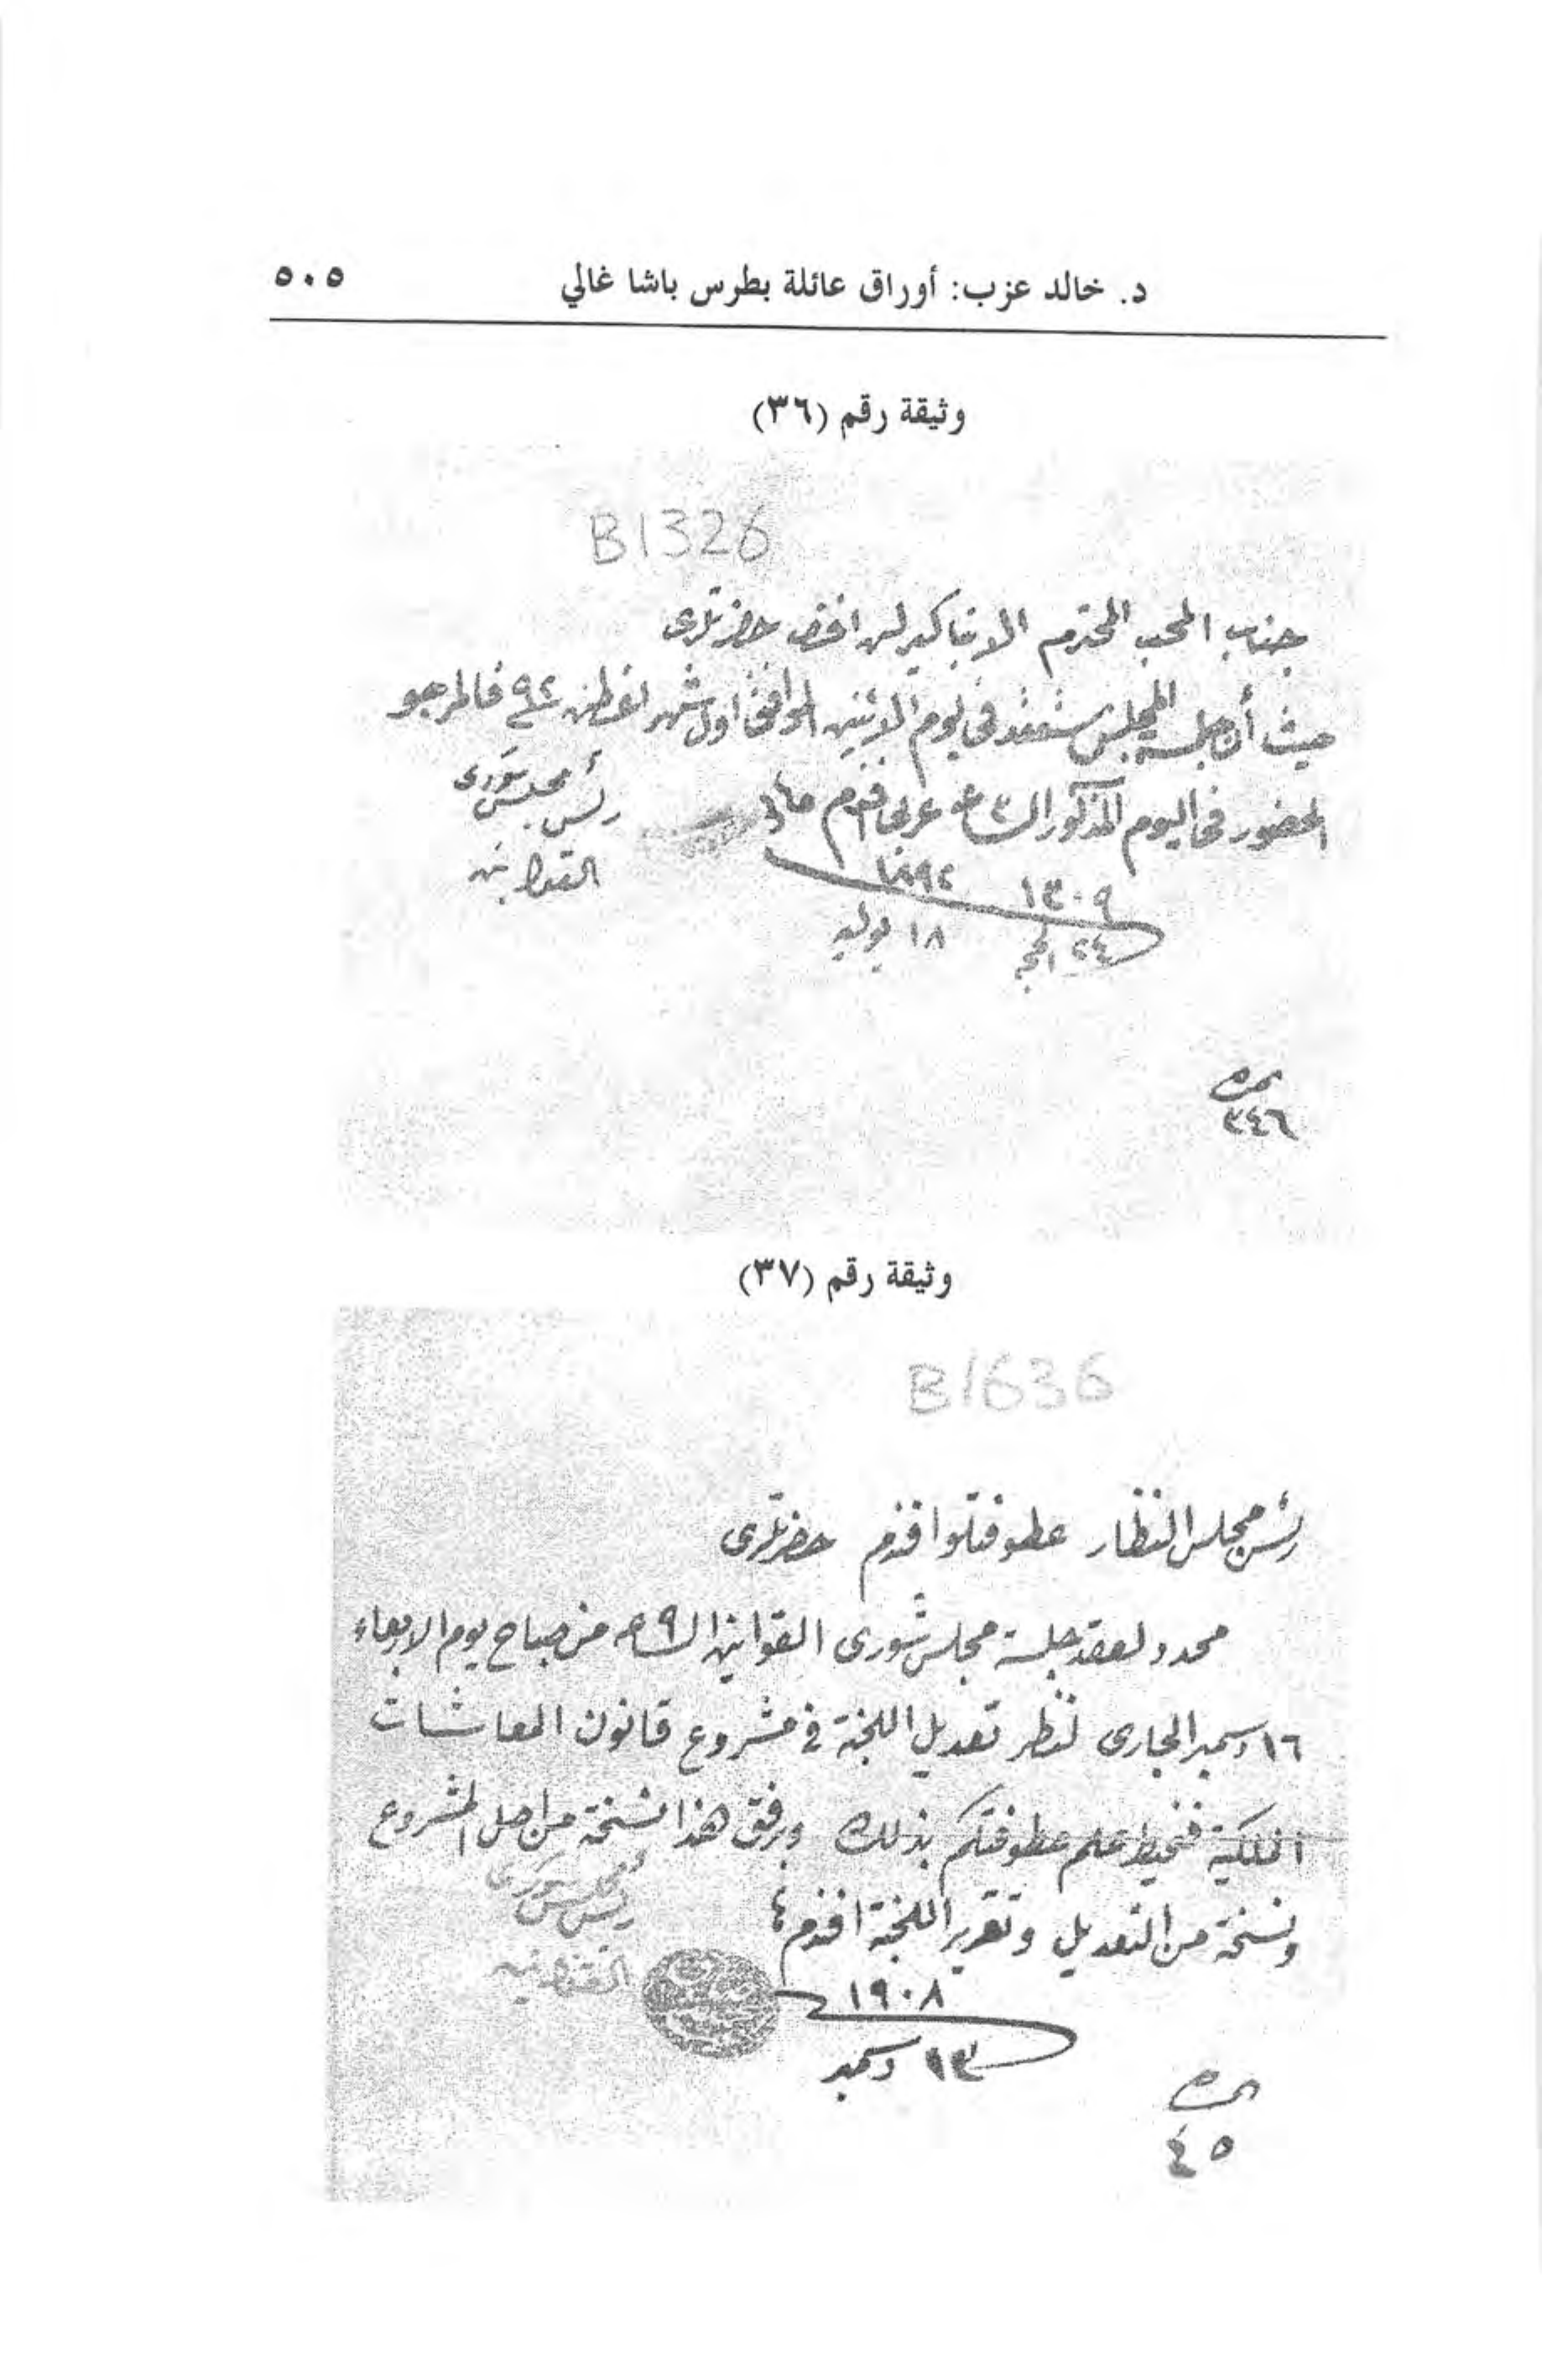 د. خالد عزب: أوراق عائلة بطرس باشا غالي ٥٠٥
وثيقة رقم (٣٦)
B1326
جناب المحب المحترم الانبا كيرلس افخم حضرتلرى
حيث أن جلسة المجلس ستنعقد في يوم الاثنين الموافق أول شهر اغسطس ٩٢ فالمرجو
الحضور في اليوم المذكور الساعة عربي افندم
رئيس مجلس شورى
القوانين
١٣٠٩ ١٨٩٢
٢٤ الحجة ١٨ يوليه
نمره
٣٤٦
وثيقة رقم (٣٧)
B1636
رئيس مجلس النظار عطوفتلو افندم حضرتلرى
محدد لعقد جلسة مجلس شورى القوانين الساعة ٩ من صباح يوم الاربعاء
١٦ دسمبر الجارى لنظر تعديل اللجنة في مشروع قانون المعاشات
الملكية فنحيط علم عطوفتكم بذلك ويرفق هذا نسخة من اصل المشروع
ونسخة من التعديل وتقرير اللجنة افندم
رئيس مجلس شورى
القوانين
١٩٠٨
١٣ دسمبر
نمره
٤٥